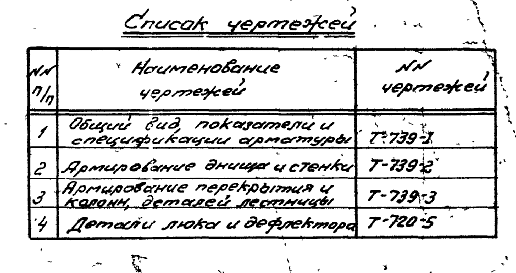 Список чертежей
NN п/п
Наименование чертежей
NN чертежей
1
Общий вид, показатели и
спецификации арматуры
Т-739-1
2
Армирование днища и стенки
Т-739-2
3
Армирование перекрытия и
колонн, деталей лестницы
Т-739-3
4
Детали люка и дефлектора
Т-720-5